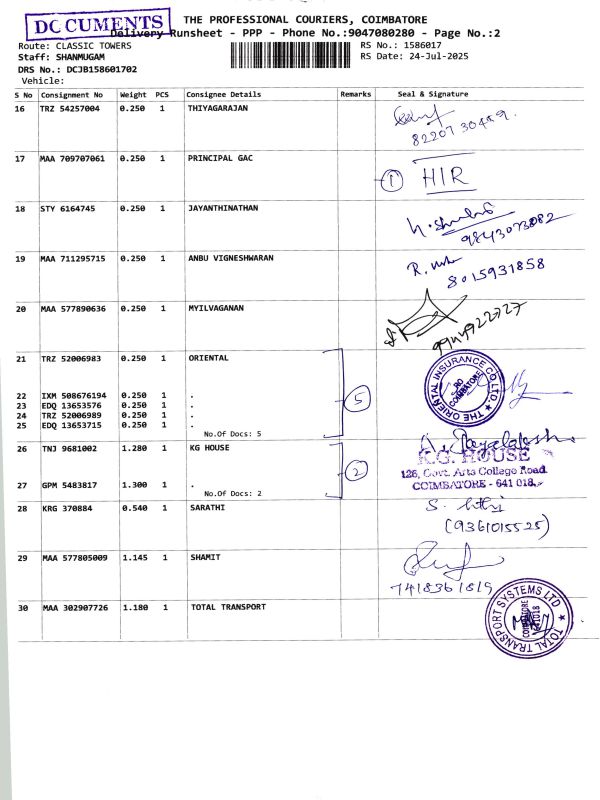 DOCUMENTS
THE PROFESSIONAL COURIERS, COIMBATORE
Delivery Runsheet - PPP - Phone No.:9047080280 - Page No.:2
Route: CLASSIC TOWERS
RS No.: 1586017
Staff: SHANMUGAM
RS Date: 24-Jul-2025
DRS No.: DCJB158601702
Vehicle:
S No Consignment No Weight PCS Consignee Details Remarks Seal & Signature
16 TRZ 54257004 0.250 1 THIYAGARAJAN
82207 30449.
17 MAA 709707061 0.250 1 PRINCIPAL GAC
1 HIR
18 STY 6164745 0.250 1 JAYANTHINATHAN
9843073082
19 MAA 711295715 0.250 1 ANBU VIGNESHWARAN
8015931858
20 MAA 577890636 0.250 1 MYILVAGANAN
9944922727
21 TRZ 52006983 0.250 1 ORIENTAL
THE ORIENTAL INSURANCE CO.LTD.
RO
COIMBATORE
22 IXM 508676194 0.250 1 .
5
23 EDQ 13653576 0.250 1 .
24 TRZ 52006989 0.250 1 .
25 EDQ 13653715 0.250 1 .
No.Of Docs: 5
26 TNJ 9681002 1.280 1 KG HOUSE
K.G. HOUSE
2
126, Govt. Arts College Road.
27 GPM 5483817 1.300 1 .
COIMBATORE - 641 018.
No.Of Docs: 2
28 KRG 370884 0.540 1 SARATHI
(9361015525)
29 MAA 577805009 1.145 1 SHAMIT
7418361819
30 MAA 302907726 1.180 1 TOTAL TRANSPORT
TOTAL TRANSPORT SYSTEMS LTD
COIMBATORE
641018